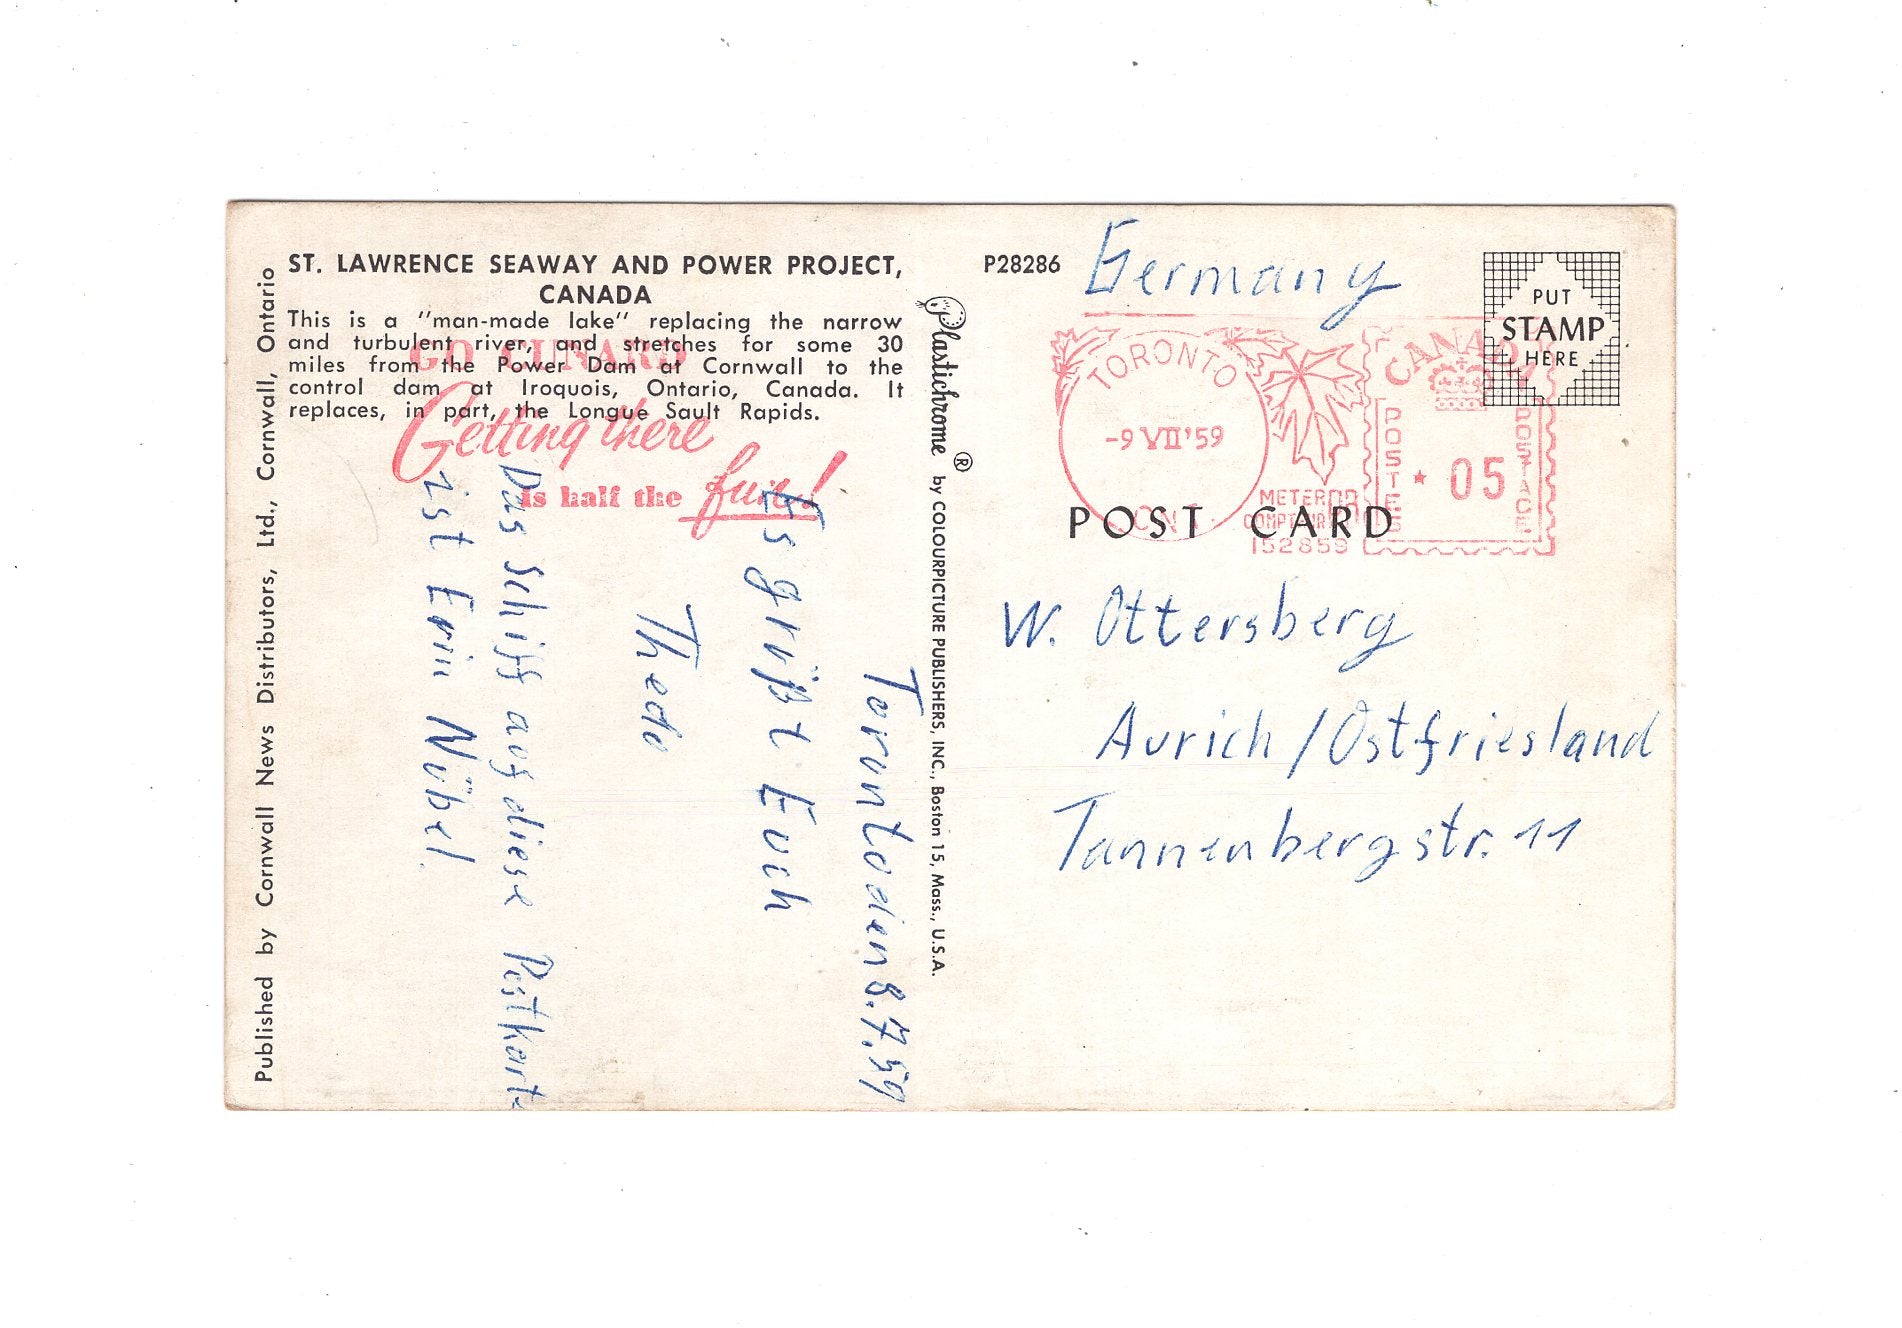 ST. LAWRENCE SEAWAY AND POWER PROJECT,
CANADA
This is a "man-made lake" replacing the narrow
and turbulent river, and stretches for some 30
miles from the Power Dam at Cornwall to the
control dam at Iroquois, Ontario, Canada. It
replaces, in part, the Longue Sault Rapids.
GO CUNARD
Getting there
is half the fun!
Published by Cornwall News Distributors, Ltd., Cornwall, Ontario
Toronto den 8.7.59
Es grüßt Euch
Thedo
Das Schiff auf diese Postkarte
ist Erin Nübel.
Plastichrome ® by COLOURPICTURE PUBLISHERS, INC., Boston 15, Mass., U.S.A.
P28286
Germany
PUT
STAMP
HERE
TORONTO
-9 VII '59
ONT.
METER
152859
CANADA
POSTES
POSTAGE
05
POST CARD
W. Ottersberg
Aurich / Ostfriesland
Tannenbergstr. 11